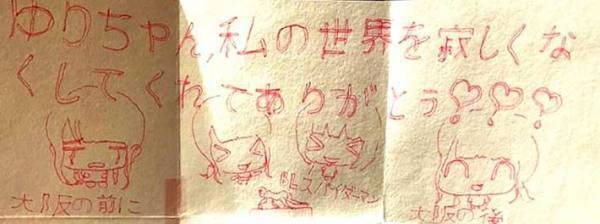 ゆりちゃん,私の世界を寂しくな
くしてくれてありがとう♡!♡!♡!
大阪の前に
スパイダーマン
大阪の後